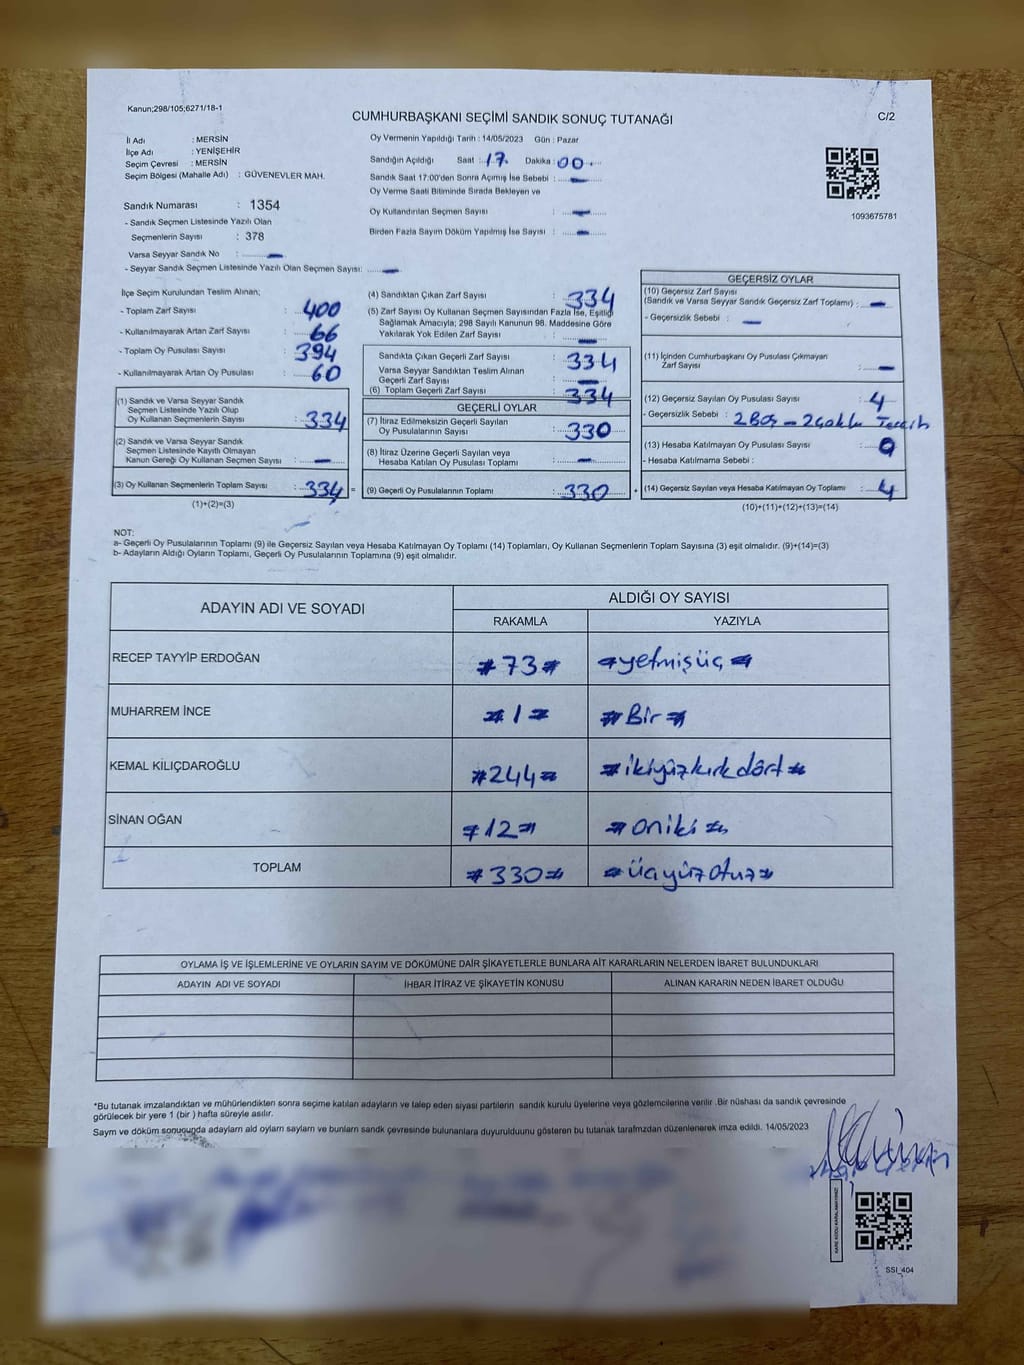 Kanun;298/105;6271/18-1
CUMHURBAŞKANI SEÇİMİ SANDIK SONUÇ TUTANAĞI
C/2
İl Adı : MERSİN
İlçe Adı : YENİŞEHİR
Seçim Çevresi : MERSİN
Seçim Bölgesi (Mahalle Adı) : GÜVENEVLER MAH.
Sandık Numarası : 1354
- Sandık Seçmen Listesinde Yazılı Olan
Seçmenlerin Sayısı : 378
Varsa Seyyar Sandık No : —
- Seyyar Sandık Seçmen Listesinde Yazılı Olan Seçmen Sayısı: —
Oy Vermenin Yapıldığı Tarih : 14/05/2023 Gün : Pazar
Sandığın Açıldığı Saat : 17. Dakika : 00.
Sandık Saat 17:00'den Sonra Açımış İse Sebebi : —
Oy Verme Saati Bitiminde Sırada Bekleyen ve
Oy Kullandırılan Seçmen Sayısı : —
Birden Fazla Sayım Döküm Yapılmış İse Sayısı : —
1093675781
İlçe Seçim Kurulundan Teslim Alınan;
- Toplam Zarf Sayısı : 400
- Kullanılmayarak Artan Zarf Sayısı : 66
- Toplam Oy Pusulası Sayısı : 394
- Kullanılmayarak Artan Oy Pusulası : 60
(1) Sandık ve Varsa Seyyar Sandık
Seçmen Listesinde Yazılı Olup
Oy Kullanan Seçmenlerin Sayısı : 334
(2) Sandık ve Varsa Seyyar Sandık
Seçmen Listesinde Kayıtlı Olmayan
Kanun Gereği Oy Kullanan Seçmen Sayısı : —
(3) Oy Kullanan Seçmenlerin Toplam Sayısı : 334 =
(1)+(2)=(3)
(4) Sandıktan Çıkan Zarf Sayısı : 334
(5) Zarf Sayısı Oy Kullanan Seçmen Sayısından Fazla İse, Eşitliği
Sağlamak Amacıyla; 298 Sayılı Kanunun 98. Maddesine Göre
Yakılarak Yok Edilen Zarf Sayısı : —
Sandıkta Çıkan Geçerli Zarf Sayısı : 334
Varsa Seyyar Sandıktan Teslim Alınan
Geçerli Zarf Sayısı : —
(6) Toplam Geçerli Zarf Sayısı : 334
GEÇERLİ OYLAR
(7) İtiraz Edilmeksizin Geçerli Sayılan
Oy Pusulalarının Sayısı : 330
(8) İtiraz Üzerine Geçerli Sayılan veya
Hesaba Katılan Oy Pusulası Toplamı : —
(9) Geçerli Oy Pusulalarının Toplamı : 330 +
GEÇERSİZ OYLAR
(10) Geçersiz Zarf Sayısı
(Sandık ve Varsa Seyyar Sandık Geçersiz Zarf Toplamı) : —
- Geçersizlik Sebebi : —
(11) İçinden Cumhurbaşkanı Oy Pusulası Çıkmayan
Zarf Sayısı : —
(12) Geçersiz Sayılan Oy Pusulası Sayısı : 4
- Geçersizlik Sebebi : 2 Boş - 2 çoklu Tercih
(13) Hesaba Katılmayan Oy Pusulası Sayısı : 0
- Hesaba Katılmama Sebebi :
(14) Geçersiz Sayılan veya Hesaba Katılmayan Oy Toplamı : 4
(10)+(11)+(12)+(13)=(14)
NOT:
a- Geçerli Oy Pusulalarının Toplamı (9) ile Geçersiz Sayılan veya Hesaba Katılmayan Oy Toplamı (14) Toplamları, Oy Kullanan Seçmenlerin Toplam Sayısına (3) eşit olmalıdır. (9)+(14)=(3)
b- Adayların Aldığı Oyların Toplamı, Geçerli Oy Pusulalarının Toplamına (9) eşit olmalıdır.
ADAYIN ADI VE SOYADI ALDIĞI OY SAYISI
RAKAMLA YAZIYLA
RECEP TAYYİP ERDOĞAN #73# #yetmişüç#
MUHARREM İNCE #1# #Bir#
KEMAL KILIÇDAROĞLU #244# #ikiyüzkırkdört#
SİNAN OĞAN #12# #oniki#
TOPLAM #330# #üçyüzotuz#
OYLAMA İŞ VE İŞLEMLERİNE VE OYLARIN SAYIM VE DÖKÜMÜNE DAİR ŞİKAYETLERLE BUNLARA AİT KARARLARIN NELERDEN İBARET BULUNDUKLARI
ADAYIN ADI VE SOYADI İHBAR İTİRAZ VE ŞİKAYETİN KONUSU ALINAN KARARIN NEDEN İBARET OLDUĞU
*Bu tutanak imzalandıktan ve mühürlendikten sonra seçime katılan adayların ve talep eden siyasi partilerin sandık kurulu üyelerine veya gözlemcilerine verilir .Bir nüshası da sandık çevresinde
görülecek bir yere 1 (bir ) hafta süreyle asılır.
Sayım ve döküm sonuçunda adayların ald oyların sayların ve bunların sandk çevresinde bulunanlara duyurulduunu gösteren bu tutanak tarafmzdan düzenlenerek imza edildi. 14/05/2023
KARE KODU KARALAMAYINIZ!
SSI_404